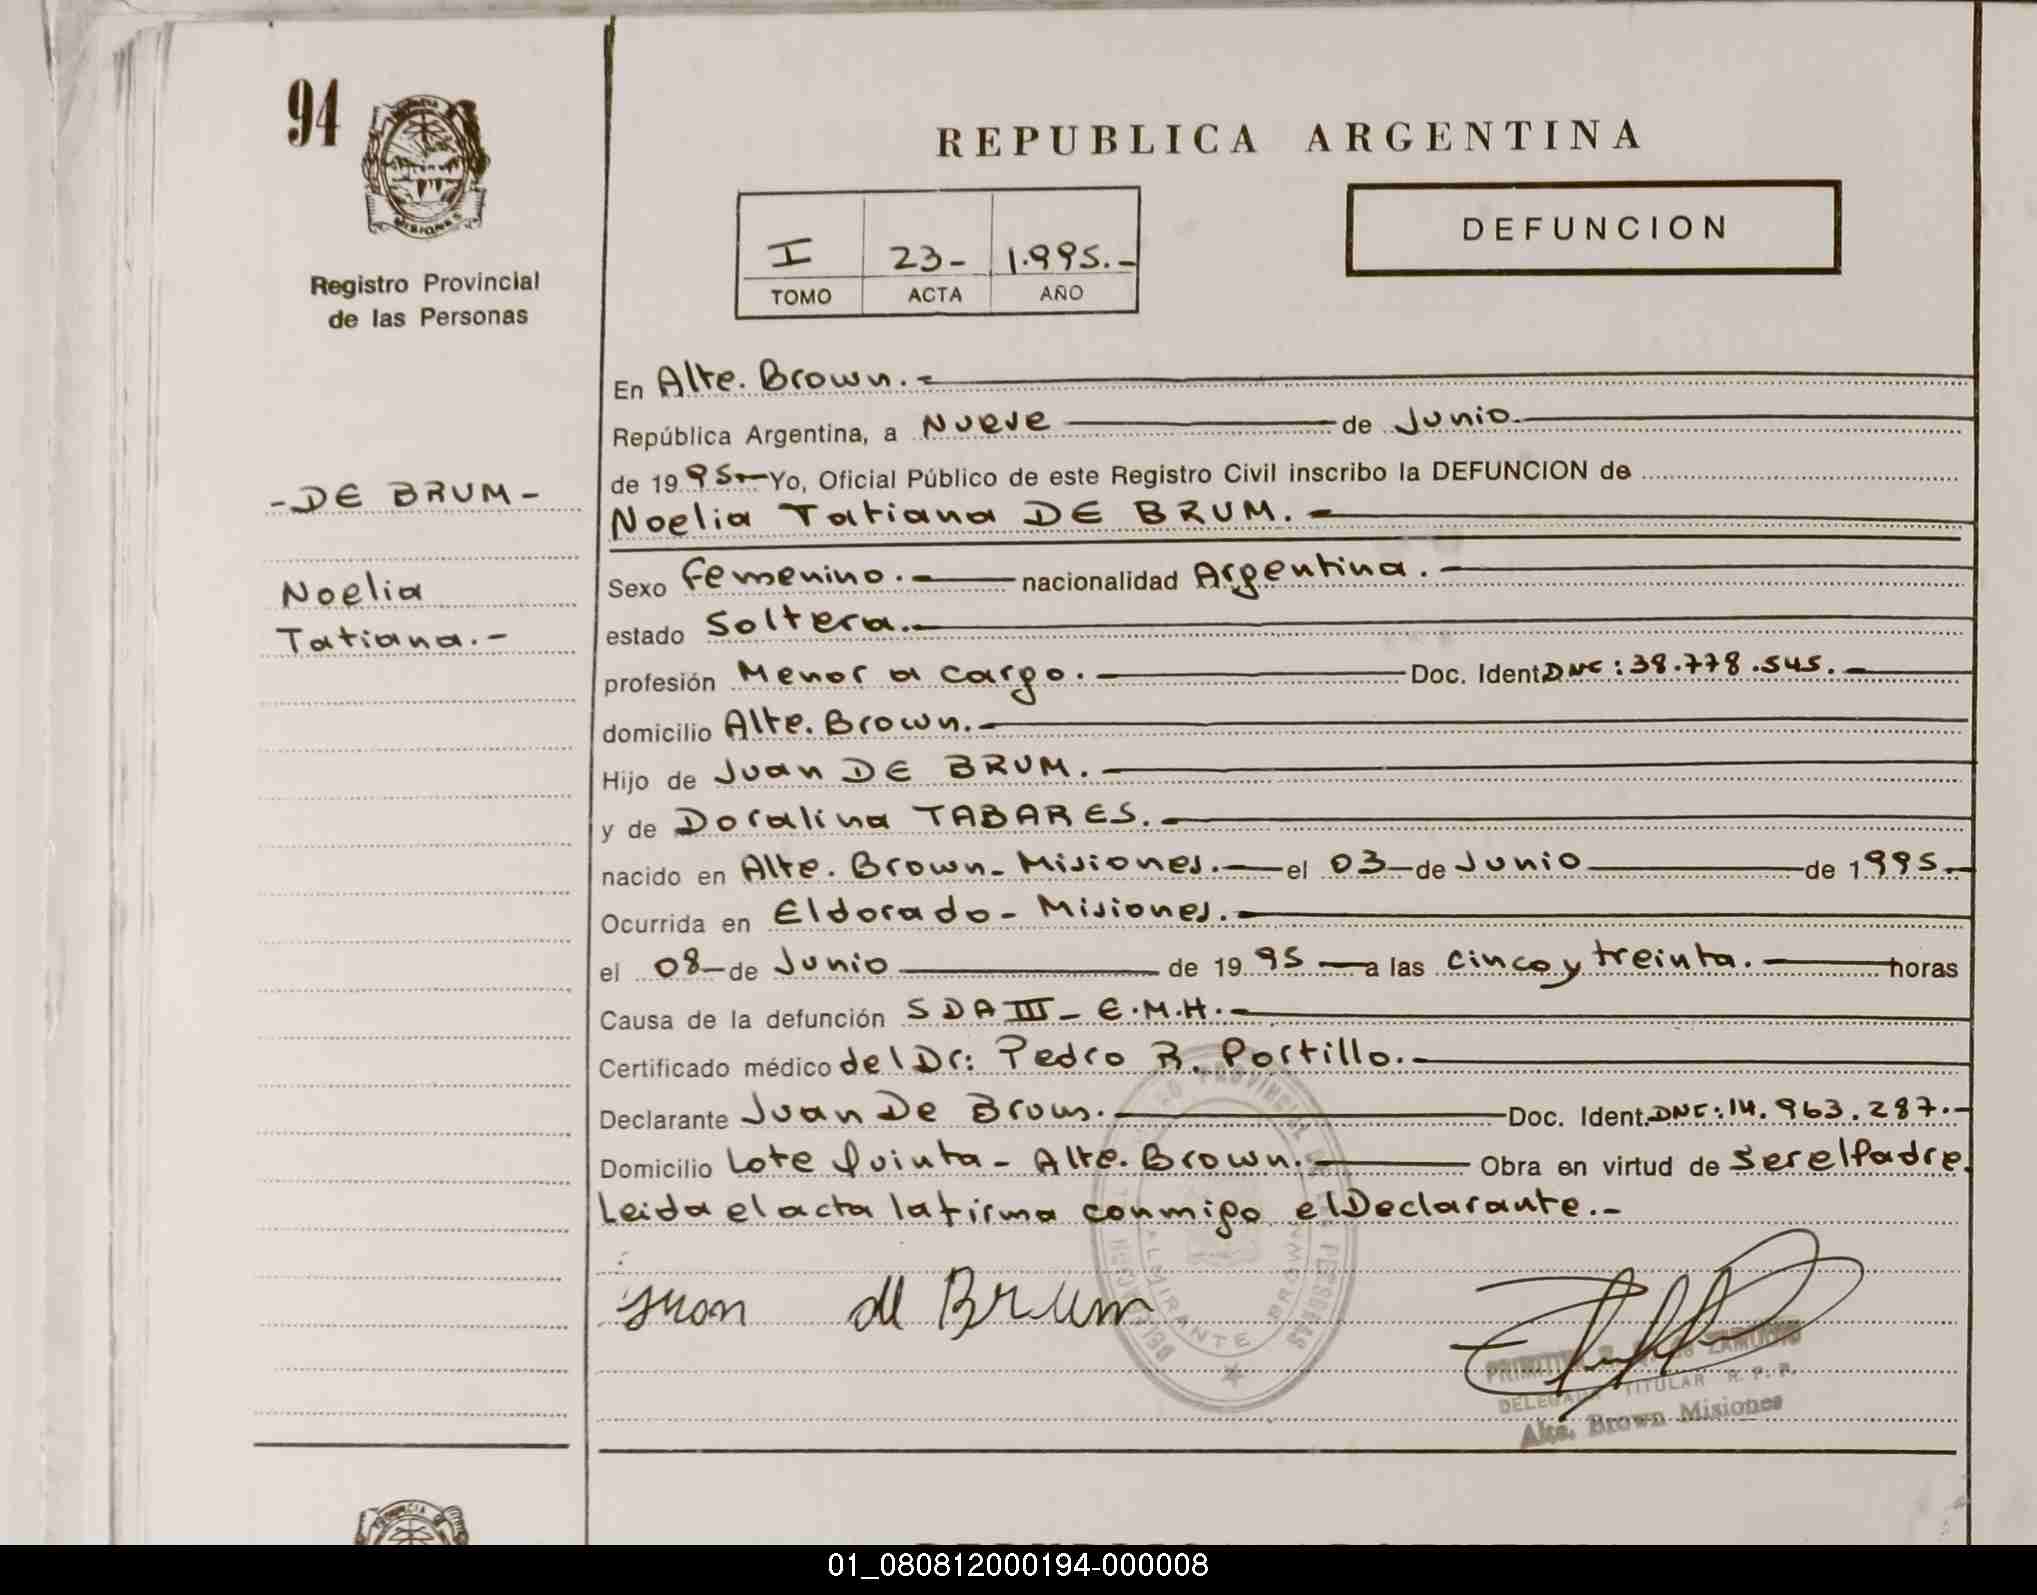 94
PROVINCIA
MISIONES
Registro Provincial
de las Personas
- DE BRUM -
Noelia
Tatiana.-
REPUBLICA ARGENTINA
I 23- 1.995.-
TOMO ACTA AÑO
DEFUNCION
En Alte. Brown.-
República Argentina, a Nueve de Junio.
de 1995.- Yo, Oficial Público de este Registro Civil inscribo la DEFUNCION de
Noelia Tatiana DE BRUM.-
Sexo Femenino.- nacionalidad Argentina.-
estado Soltera.-
profesión Menor a cargo.- Doc. Ident. DNI: 38.778.545.-
domicilio Alte. Brown.-
Hijo de Juan DE BRUM.-
y de Doralina TABARES.-
nacido en Alte. Brown-Misiones.- el 03-de Junio de 1995.-
Ocurrida en Eldorado-Misiones.-
el 08-de Junio de 1995 a las cinco y treinta.- horas
Causa de la defunción SDA III - E.M.H.-
Certificado médico del Dr: Pedro R. Portillo.-
Declarante Juan De Brum.- Doc. Ident. DNI: 14.963.287.-
Domicilio Lote Quinta - Alte. Brown.- Obra en virtud de ser el Padre.
Leida el acta la firma conmigo el Declarante.-
Juan de Brum
PROVINCIAL DE LAS PERSONAS
ALMIRANTE BROWN
ZAMUDIO
DELEGADA TITULAR R. P. P.
Alte. Brown Misiones
01_080812000194-000008